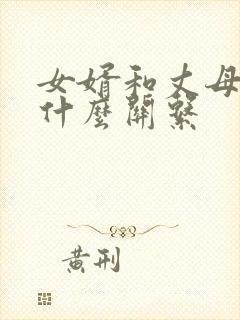 女婿和丈母
什麼關繫
黄刑